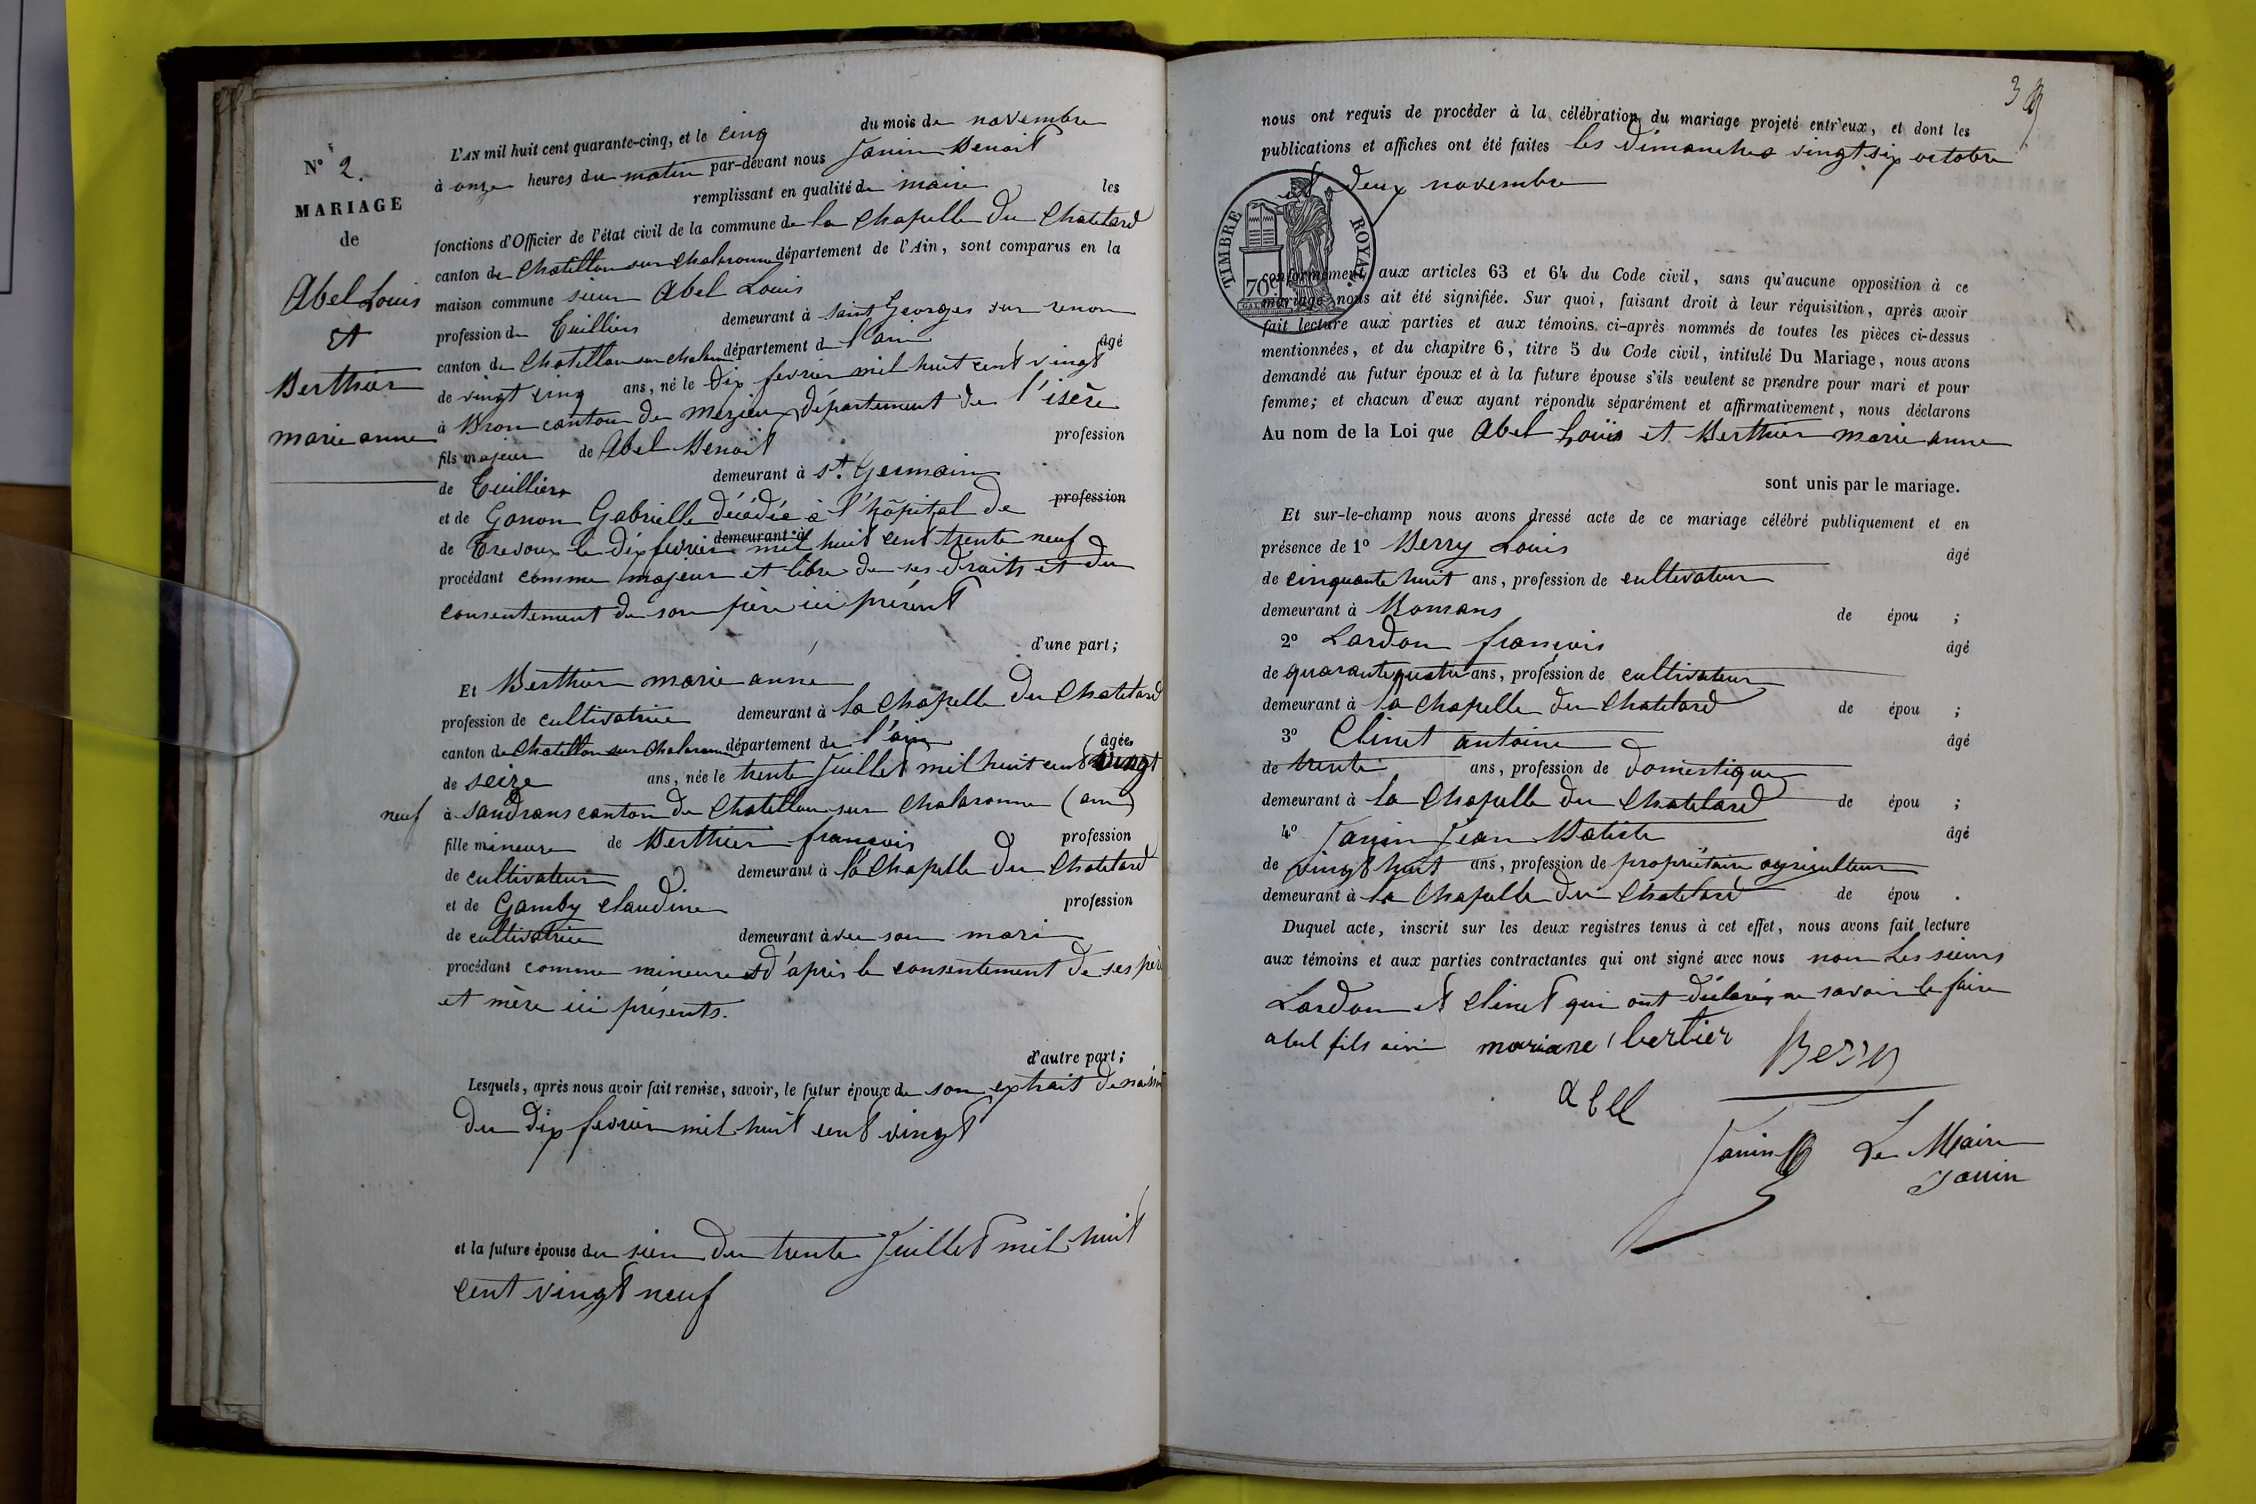 N° 2.
MARIAGE
de
Abel Louis
et
Berthier
marie anne
L'AN mil huit cent quarante-cinq, et le cinq du mois de novembre
à onze heures du matin par-devant nous Janin Benoit
remplissant en qualité de maire les
fonctions d'Officier de l'état civil de la commune de la Chapelle du Chatelard
canton de Chatillon sur Chalaronne département de l'Ain, sont comparus en la
maison commune sieur Abel Louis
profession de Tuillier demeurant à saint Georges sur renon
canton de Chatillon sur chalar département de l'ain âgé
de vingt cinq ans, né le dix fevrier mil huit cent vingt
à Bron canton de mezieu département de l'isère
fils majeur de Abel Benoit profession
de Tuillier demeurant à St. Germain
et de Gonon Gabrielle décédée à l'hôpital de profession
de Trevoux le dix fevrier mil huit cent trente neuf demeurant à
procédant comme majeur et libre de ses droits et du
consentement de son père ici présent
d'une part;
Et Berthier marie anne
profession de cultivatrice demeurant à la Chapelle du Chatelard
canton de Chatillon sur Chalaronne département de l'ain âgée
de seize ans, née le trente Juillet mil huit cent vingt
neuf à sandrans canton de Chatillon sur Chalaronne (ain)
fille mineure de Berthier françois profession
de cultivateur demeurant à la Chapelle du Chatelard
et de Gamby claudine profession
de cultivatrice demeurant à vec son mari
procédant comme mineure et d'après le consentement de ses père
et mère ici présents.
d'autre part;
Lesquels, après nous avoir fait remise, savoir, le futur époux de son extrait de
du dix fevrier mil huit cent vingt
et la future épouse du sien du trente Juillet mil huit
cent vingt neuf
3
nous ont requis de procéder à la célébration du mariage projeté entr'eux, et dont les
publications et affiches ont été faites les dimanches vingt six octobre
et deux novembre
TIMBRE ROYAL
70c
conformément aux articles 63 et 64 du Code civil, sans qu'aucune opposition à ce
mariage nous ait été signifiée. Sur quoi, faisant droit à leur réquisition, après avoir
fait lecture aux parties et aux témoins ci-après nommés de toutes les pièces ci-dessus
mentionnées, et du chapitre 6, titre 5 du Code civil, intitulé Du Mariage, nous avons
demandé au futur époux et à la future épouse s'ils veulent se prendre pour mari et pour
femme; et chacun d'eux ayant répondu séparément et affirmativement, nous déclarons
Au nom de la Loi que Abel Louis et Berthier marie anne
sont unis par le mariage.
Et sur-le-champ nous avons dressé acte de ce mariage célébré publiquement et en
présence de 1° Berry Louis âgé
de cinquante huit ans, profession de cultivateur
demeurant à Romans de épou ;
2° Lardon françois âgé
de quarante quatre ans, profession de cultivateur
demeurant à la Chapelle du Chatelard de épou ;
3° Clinet antoine âgé
de trente ans, profession de domestique
demeurant à la Chapelle du Chatelard de épou ;
4° Janin Jean Batiste âgé
de vingt huit ans, profession de propriétaire agriculteur
demeurant à la Chapelle du Chatelard de épou .
Duquel acte, inscrit sur les deux registres tenus à cet effet, nous avons fait lecture
aux témoins et aux parties contractantes qui ont signé avec nous non Les sieurs
Lardon et Clinet qui ont déclaré ne savoir le faire
abel fils mariane bertier Berry
abel
Janin Le Maire
Janin